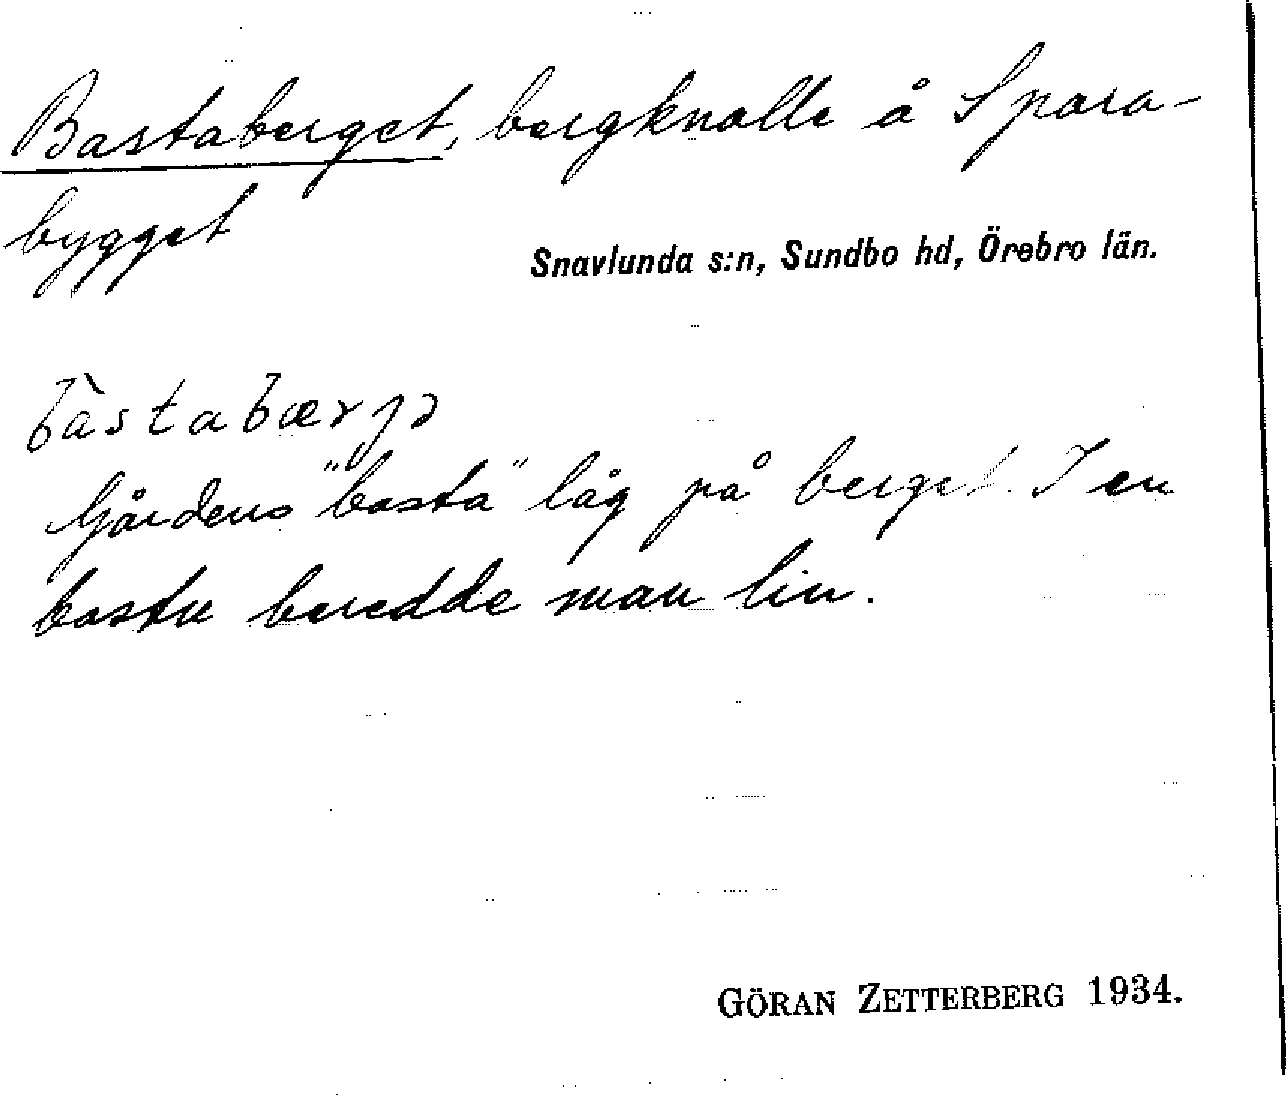 Bastaberget, bergknalle å Spara-
bygget
Snavlunda s:n, Sundbo hd, Örebro län.
bàstabærjə
Gårdens "basta" låg på berget. I en
bastu beredde man lin.
GÖRAN ZETTERBERG 1934.